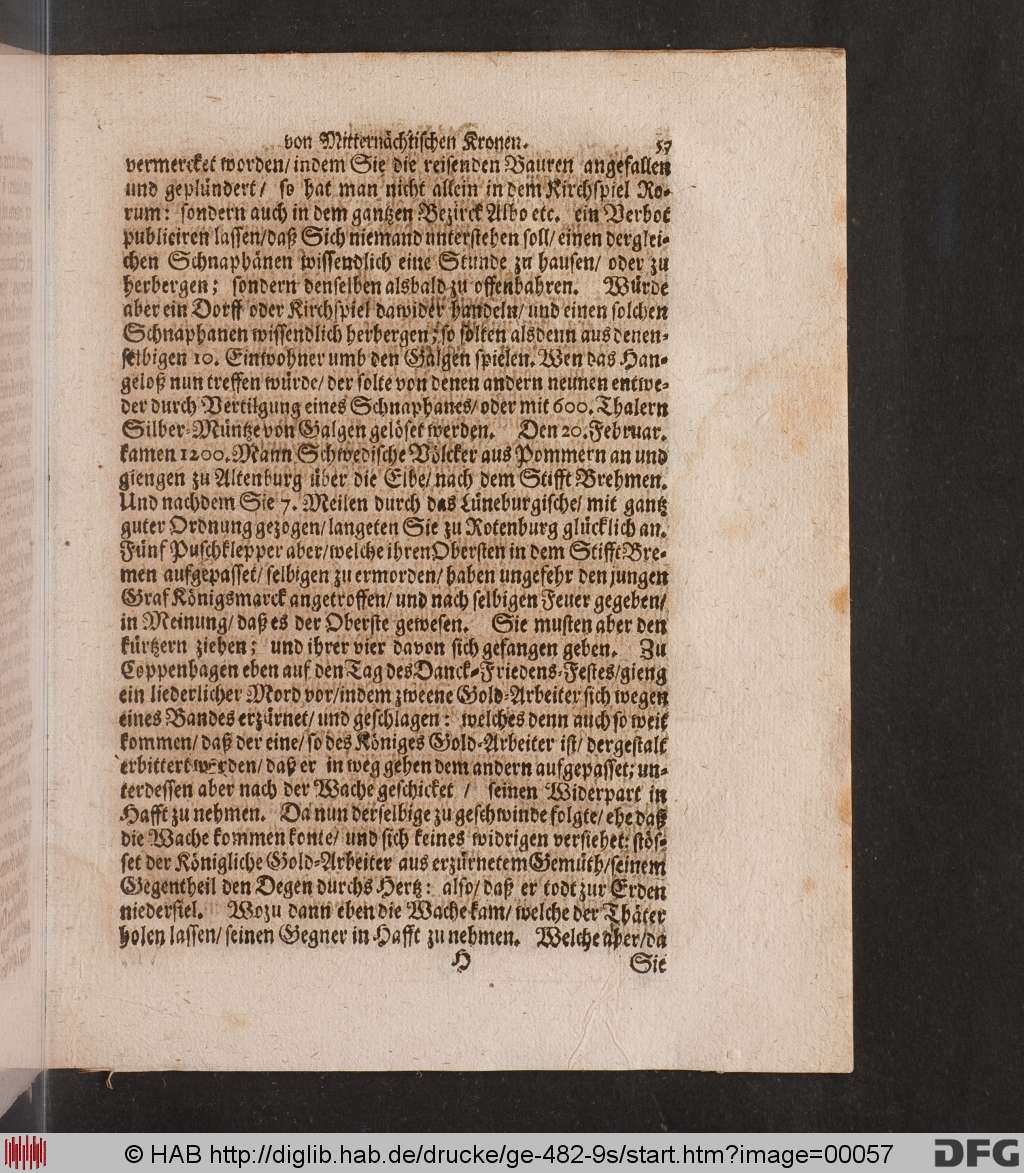 von Mitternächtischen Kronen. 57
vermercket worden/ indem Sie die reisenden Bauren angefallen
und geplündert/ so hat man nicht allein in dem Kirchspiel Ro-
rum: sondern auch in dem gantzen Bezirck Albo etc. ein Verbot
publiciren lassen/daß Sich niemand unterstehen soll/ einen derglei-
chen Schnaphänen wissendlich eine Stunde zu hausen/ oder zu
herbergen; sondern denselben alsbald zu offenbahren. Würde
aber ein Dorff oder Kirchspiel dawider handeln/ und einen solchen
Schnaphanen wissendlich herbergen; so solten alsdenn aus denen-
selbigen 10. Einwohner umb den Galgen spielen. Wen das Han-
geloß nun treffen würde/ der solte von denen andern neunen entwe-
der durch Vertilgung eines Schnaphanes/ oder mit 600. Thalern
Silber-Müntze von Galgen gelöset werden. Den 20. Februar.
kamen 1200. Mann Schwedische Völcker aus Pommern an und
giengen zu Altenburg über die Elbe/ nach dem Stifft Brehmen.
Und nachdem Sie 7. Meilen durch das Lüneburgische/ mit gantz
guter Ordnung gezogen/ langeten Sie zu Rotenburg glücklich an.
Fünf Puschklepper aber/welche ihren Obersten in dem Stifft Bre-
men aufgepasset/ selbigen zu ermorden/ haben ungefehr den jungen
Graf Königsmarck angetroffen/ und nach selbigen Feuer gegeben/
in Meinung/ daß es der Oberste gewesen. Sie musten aber den
kürtzern ziehen; und ihrer vier davon sich gefangen geben. Zu
Coppenhagen eben auf den Tag des Danck-Friedens-Festes/gieng
ein liederlicher Mord vor/indem zweene Gold-Arbeiter sich wegen
eines Bandes erzürnet/ und geschlagen: welches denn auch so weit
kommen/ daß der eine/ so des Königes Gold-Arbeiter ist/ dergestalt
erbittert werden/ daß er in weg gehen dem andern aufgepasset; un-
terdessen aber nach der Wache geschicket / seinen Widerpart in
Hafft zu nehmen. Da nun derselbige zu geschwinde folgte/ ehe daß
die Wache kommen konte/ und sich keines widrigen versiehet: stös-
set der Königliche Gold-Arbeiter aus erzürnetem Gemüth/seinem
Gegentheil den Degen durchs Hertz: also/ daß er todt zur Erden
niederfiel. Wozu dann eben die Wache kam/ welche der Thäter
holen lassen/ seinen Gegner in Hafft zu nehmen. Welche aber/da
H Sie
© HAB http://diglib.hab.de/drucke/ge-482-9s/start.htm?image=00057
DFG